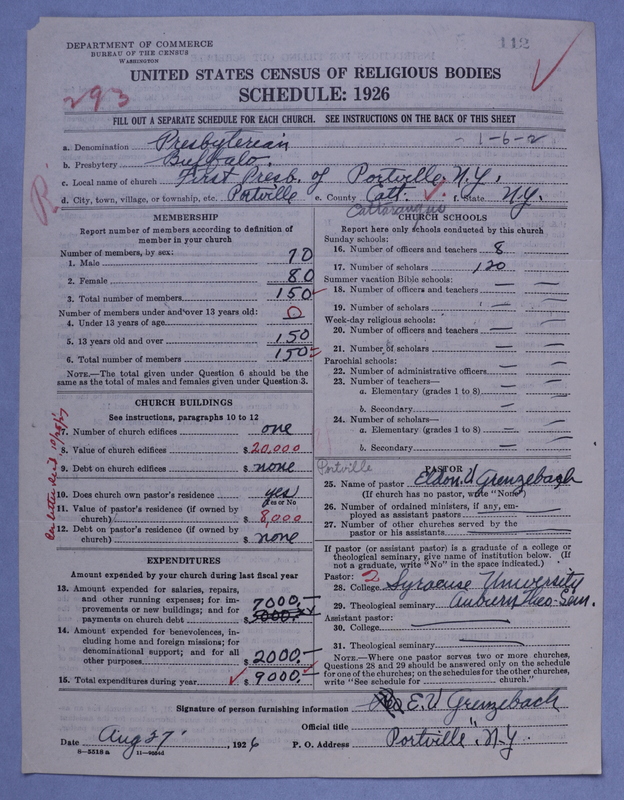 DEPARTMENT OF COMMERCE
BUREAU OF THE CENSUS
WASHINGTON
112
293
UNITED STATES CENSUS OF RELIGIOUS BODIES
SCHEDULE: 1926
FILL OUT A SEPARATE SCHEDULE FOR EACH CHURCH. SEE INSTRUCTIONS ON THE BACK OF THIS SHEET
a. Denomination Presbyterian - 1-6-2
b. Presbytery Buffalo.
c. Local name of church First Presb. of Portville, N.Y.
R
d. City, town, village, or township, etc. Portville e. County Catt. f. State N.Y.
Cattaraugus
MEMBERSHIP
Report number of members according to definition of
member in your church
Number of members, by sex:
1. Male 70
2. Female 80
3. Total number of members 150
Number of members under and over 13 years old:
4. Under 13 years of age 0
5. 13 years old and over 150
6. Total number of members 150
NOTE.—The total given under Question 6 should be the
same as the total of males and females given under Question 3.
CHURCH BUILDINGS
See instructions, paragraphs 10 to 12
7. Number of church edifices one
8. Value of church edifices $ 20,000
9. Debt on church edifices $ none
10. Does church own pastor's residence yes
Yes or No
11. Value of pastor's residence (if owned by
church) $ 8,000
12. Debt on pastor's residence (if owned by
church) $ none
EXPENDITURES
Amount expended by your church during last fiscal year
13. Amount expended for salaries, repairs,
and other running expenses; for im-
provements or new buildings; and for
payments on church debt $ 7000,—
5000
14. Amount expended for benevolences, in-
cluding home and foreign missions; for
denominational support; and for all
other purposes $ 2000.—
15. Total expenditures during year $ 9000.—
CHURCH SCHOOLS
Report here only schools conducted by this church
Sunday schools:
16. Number of officers and teachers 8
17. Number of scholars 120
Summer vacation Bible schools:
18. Number of officers and teachers —
19. Number of scholars —
Week-day religious schools:
20. Number of officers and teachers —
21. Number of scholars —
Parochial schools:
22. Number of administrative officers —
23. Number of teachers—
a. Elementary (grades 1 to 8) —
b. Secondary —
24. Number of scholars—
a. Elementary (grades 1 to 8) —
b. Secondary —
Portville
PASTOR
25. Name of pastor Eldon U Grenzebach
(If church has no pastor, write "None")
26. Number of ordained ministers, if any, em-
ployed as assistant pastors
27. Number of other churches served by the
pastor or his assistants
If pastor (or assistant pastor) is a graduate of a college or
theological seminary, give name of institution below. (If
not a graduate, write "No" in the space indicated.)
Pastor: 2
28. College Syracuse University
29. Theological seminary Auburn Theo. Sem.
Assistant pastor:
30. College
31. Theological seminary
NOTE.—Where one pastor serves two or more churches,
Questions 28 and 29 should be answered only on the schedule
for one of the churches; on the schedules for the other churches,
write "See schedule for church."
Signature of person furnishing information E. U Grenzebach
Official title "
Date Aug 27, 1926 P. O. Address Portville, N.Y.
8—5518 a